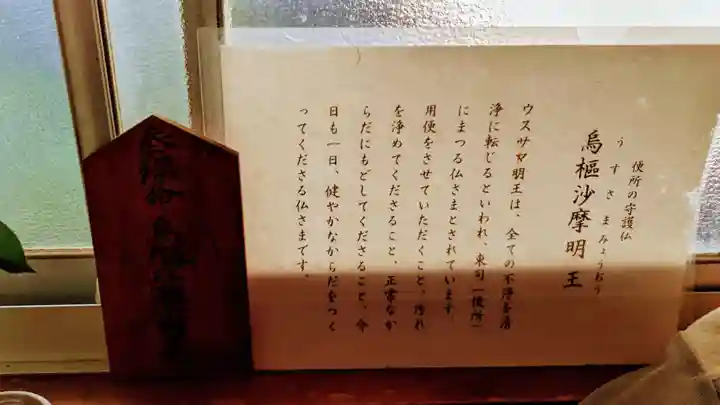 便所の守護仏
うすさまみょうおう
烏樞沙摩明王
ウスサマ明王は、全ての不浄を清
浄に転じるといわれ、東司(便所)
にまつる仏さまとされています。
用便をさせていただくこと、汚れ
を浄めてくださること、正常なか
らだにもどしてくださること、今
日も一日、健やかなからだをつく
ってくださる仏さまです。